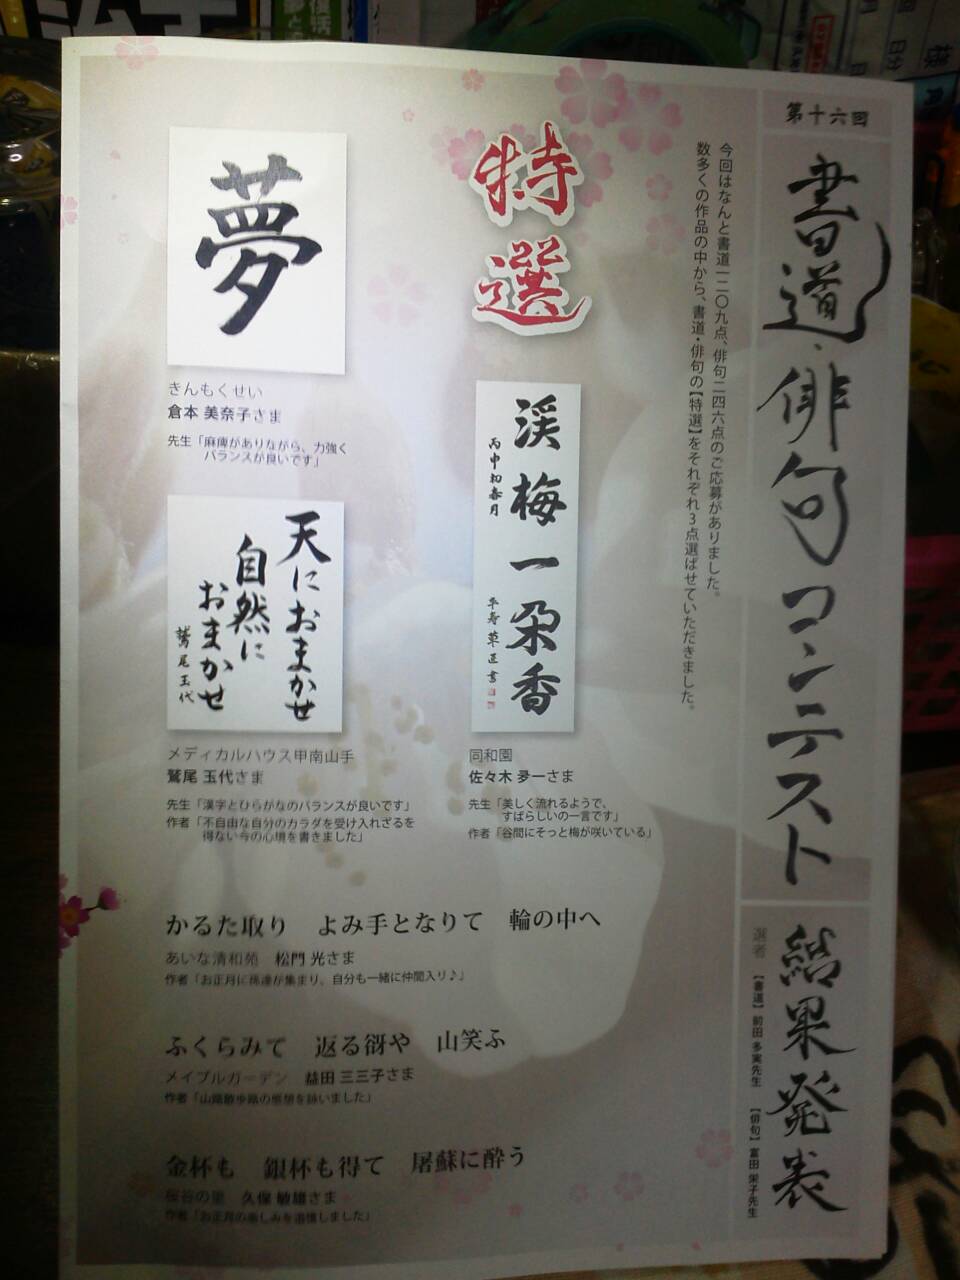 第十六回
書道・俳句コンテスト
結果発表
選者
【書道】前田 多実先生
【俳句】富田 栄子先生
今回はなんと書道一二〇九点、俳句二四六点のご応募がありました。
数多くの作品の中から、書道・俳句の【特選】をそれぞれ3点選ばせていただきました。
特選
渓梅一朶香
丙申初春月
同和園
佐々木 夛一さま
先生「美しく流れるようで、
すばらしいの一言です」
作者「谷間にそっと梅が咲いている」
夢
きんもくせい
倉本 美奈子さま
先生「麻痺がありながら、力強く
バランスが良いです」
天におまかせ
自然に
おまかせ
鷲尾玉代
メディカルハウス甲南山手
鷲尾 玉代さま
先生「漢字とひらがなのバランスが良いです」
作者「不自由な自分のカラダを受け入れざるを
得ない今の心境を書きました」
かるた取り よみ手となりて 輪の中へ
あいな清和苑 松門 光さま
作者「お正月に孫達が集まり、自分も一緒に仲間入り♪」
ふくらみて 返る谺や 山笑ふ
メイプルガーデン 益田 三三子さま
作者「山陽散歩路の感想を詠いました」
金杯も 銀杯も得て 屠蘇に酔う
桜谷の里 久保 敏雄さま
作者「お正月の楽しみを追憶しました」